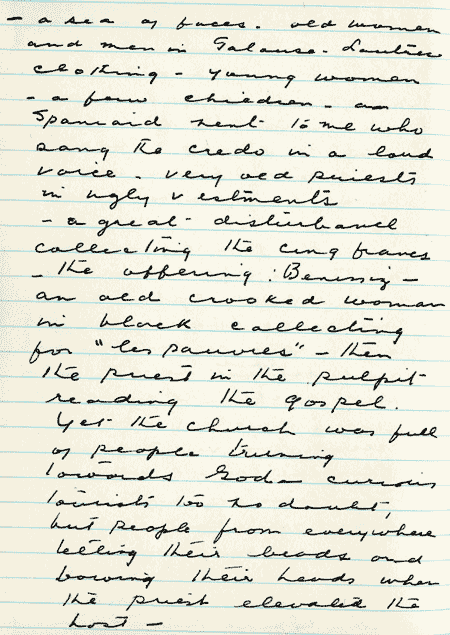 - a sea of faces. old women
and men in Galouse -
clothing - young women
- a few children - an
Spaniard next to me who
sang the credo in a loud
voice - very old priests
in ugly vestments
- a great disturbance
collecting the cinq francs
- the offering : -
an old crooked woman
in black collecting
for "les pauvres" - then
the priest in the pulpit
reading the gospel.
Yet the church was full
of people turning
towards God - curious
tourists too no doubt,
but people from everywhere
telling their beads and
bowing their heads when
the priest elevated the
host -